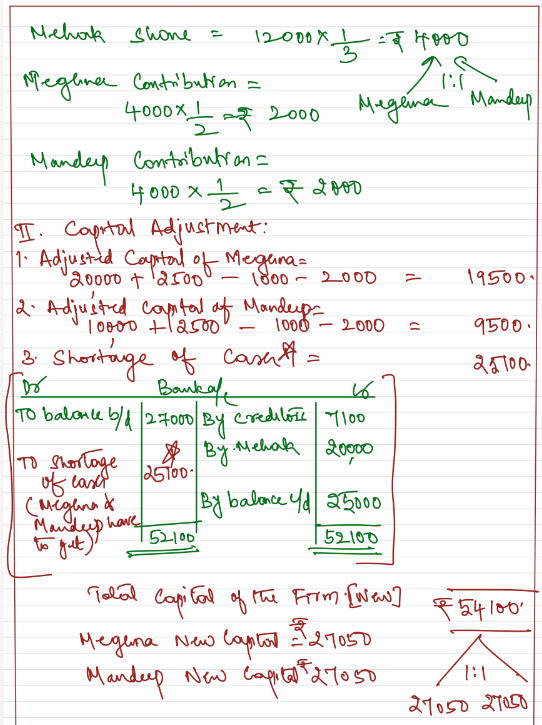 Mehak Share = 12000 × 1/3 = ₹ 4000
Meghna Contribution =
4000 × 1/2 = ₹ 2000
1:1
Meghna Mandeep
Mandeep Contribution =
4000 × 1/2 = ₹ 2000
II. Capital Adjustment:
1. Adjusted Capital of Meghna =
20000 + 2500 - 1000 - 2000 = 19500.
2. Adjusted Capital of Mandeep =
10000 + 2500 - 1000 - 2000 = 9500.
3. Shortage of Cash = 25100.
Dr Bank a/c Cr
To balance b/d 27000 By Creditors 7100
By Mehak 20000
To Shortage of cash (Meghna & Mandeep have to get) 25100.
By balance c/d 25000
52100 52100
Total Capital of the Firm [New] ₹ 54100
Meghna New Capital = ₹ 27050
Mandeep New Capital ₹ 27050
1:1
27050 27050